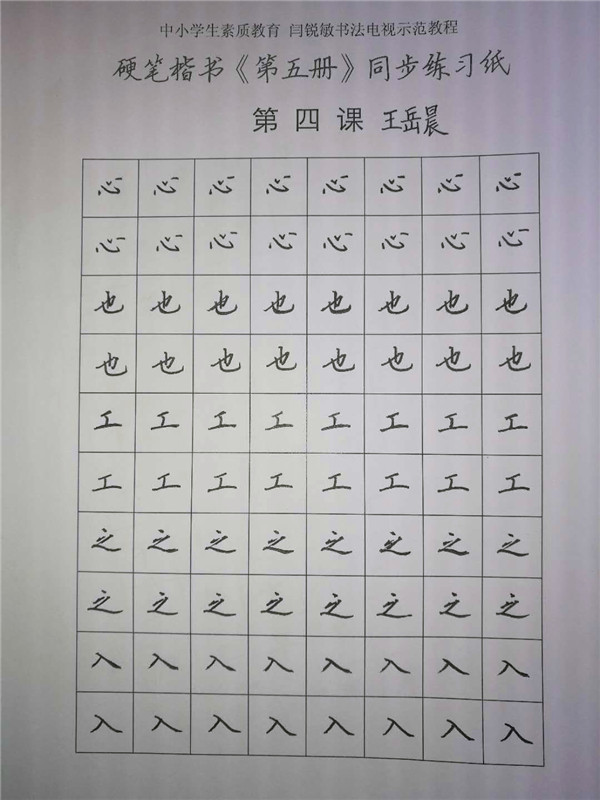 中小学生素质教育 闫锐敏书法电视示范教程
硬笔楷书《第五册》同步练习纸
第四课 王岳晨
心 心 心 心 心 心 心 心
心 心 心 心 心 心 心 心
也 也 也 也 也 也 也 也
也 也 也 也 也 也 也 也
工 工 工 工 工 工 工 工
工 工 工 工 工 工 工 工
之 之 之 之 之 之 之 之
之 之 之 之 之 之 之 之
入 入 入 入 入 入 入 入
入 入 入 入 入 入 入 入